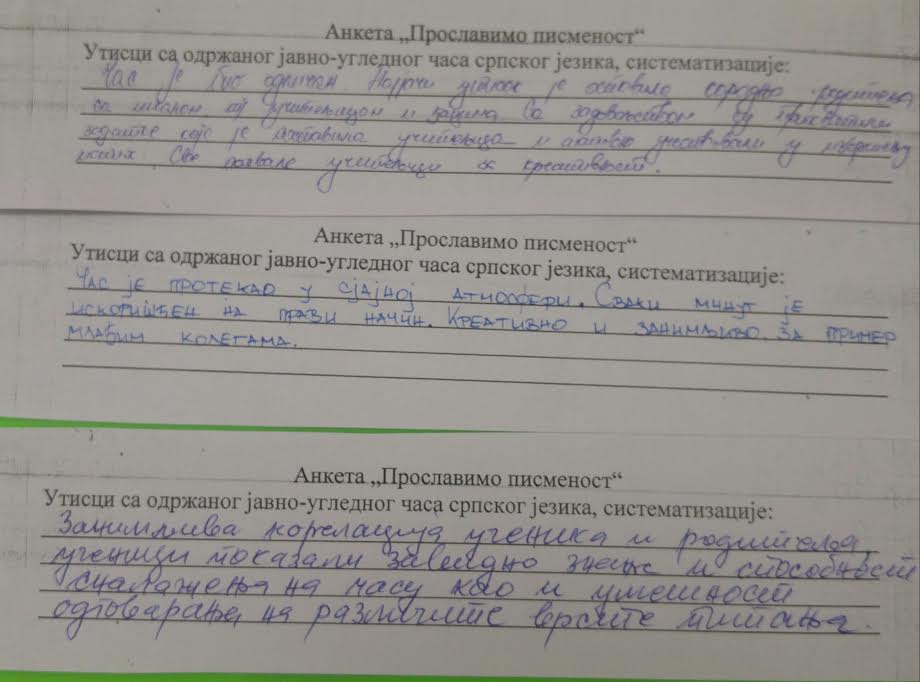 Анкета „Прославимо писменост“
Утисци са одржаног јавно-угледног часа српског језика, систематизације:
Час је био одличан. Најјачи утисак је оставила сарадња родитеља
са школом тј учитељицом и њима са задовољством су прихватили
задатке које је поставила учитељица и активно учествовали у
истих. Све похвале учитељици за креативност.
Анкета „Прославимо писменост“
Утисци са одржаног јавно-угледног часа српског језика, систематизације:
Час је протекао у сјајној атмосфери. Сваки минут је
искоришћен на прави начин. Креативно и занимљиво. За пример
млађим колегама.
Анкета „Прославимо писменост“
Утисци са одржаног јавно-угледног часа српског језика, систематизације:
Занимљива корелација ученика и родитеља,
ученици показали завидно знање и способност
сналажења на часу као и умешност
одговарања на различите врсте питања.